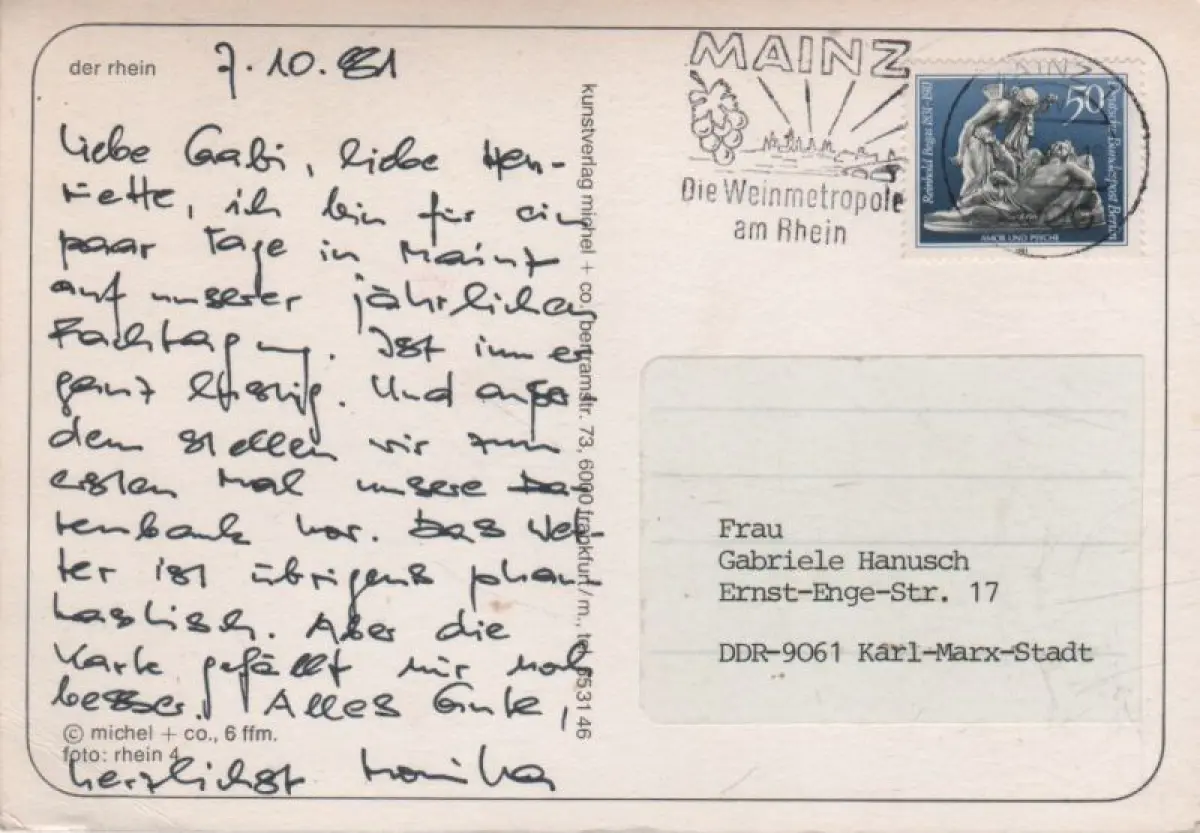 der rhein
7.10.81
Liebe Gabi, liebe Hen-
riette, ich bin für ein
paar Tage in Mainz
auf unserer jährlichen
Fachtagung. Ist immer
ganz lustig. Und außer
dem stellen wir zum
ersten Mal unsere Da-
tenbank vor. Das Wet-
ter ist übrigens phan-
tastisch. Aber die
Karte gefällt mir noch
besser. Alles Gute,
herzlichst Monika
© michel + co., 6 ffm.
foto: rhein 4
kunstverlag michel + co., bertramstr. 73, 6000 frankfurt/m., 553146
MAINZ
Die Weinmetropole
am Rhein
MAINZ
50
Reinhold Begas 1831-1911
Deutsche Bundespost Berlin
AMOR UND PSYCHE
Frau
Gabriele Hanusch
Ernst-Enge-Str. 17
DDR-9061 Karl-Marx-Stadt